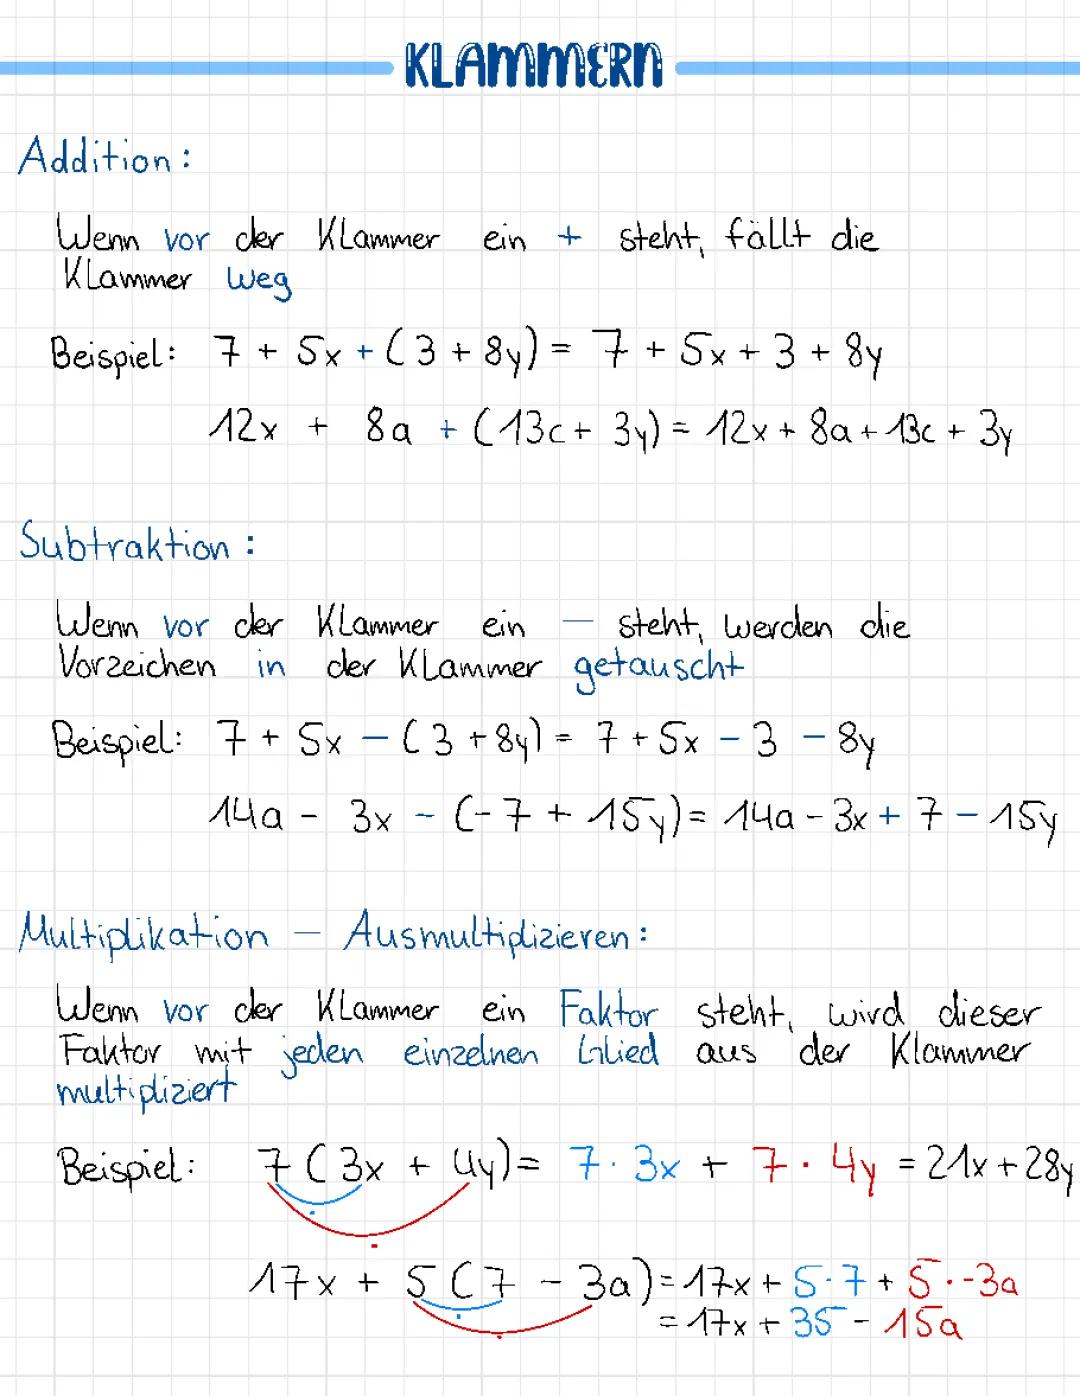 KLAMMERN
Addition:
Wenn vor der Klammer ein + steht, fällt die
Klammer weg
Beispiel: 7 + 5x + (3 + 8y) = 7 + 5x + 3 + 8y
12x + 8a + (13c + 3y) = 12x + 8a + 13c + 3y
Subtraktion:
Wenn vor der Klammer ein − steht, werden die
Vorzeichen in der Klammer getauscht
Beispiel: 7 + 5x − (3 + 8y) = 7 + 5x − 3 − 8y
14a − 3x − (−7 + 15y) = 14a − 3x + 7 − 15y
Multiplikation − Ausmultiplizieren:
Wenn vor der Klammer ein Faktor steht, wird dieser
Faktor mit jeden einzelnen Glied aus der Klammer
multipliziert
Beispiel: 7 (3x + 4y) = 7 · 3x + 7 · 4y = 21x + 28y
17x + 5 (7 − 3a) = 17x + 5·7 + 5·-3a
= 17x + 35 − 15a